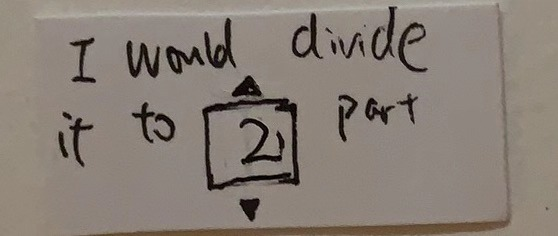 I would divide
it to 2 part